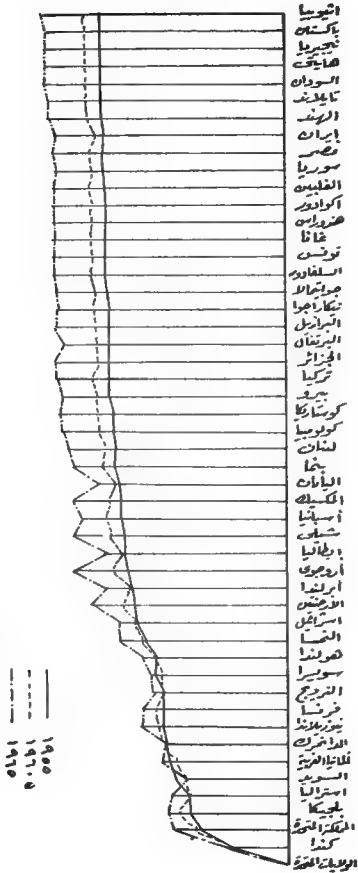 اثيوبيا
باكستان
نيجيريا
هايتى
السودان
تايلاند
الهند
ايران
مصر
سوريا
الفلبين
اكوادور
هندوراس
غانا
تونس
السلفادور
جواتيمالا
نيكاراجوا
البرازيل
البرتغال
الجزائر
تركيا
بيرو
كوستاريكا
كولومبيا
لبنان
بنما
اليابان
المكسيك
أسبانيا
شيلى
ايطاليا
أروجوى
أيرلندا
الأرجنتين
اسرائيل
النمسا
هولندا
سويسرا
النرويج
فرنسا
نيوزيلاندا
الدانمرك
ألمانيا الغربية
السويد
استراليا
بلجيكا
المملكة المتحدة
كندا
الولايات المتحدة
١٩٥٥
١٩٦٠
١٩٦٥